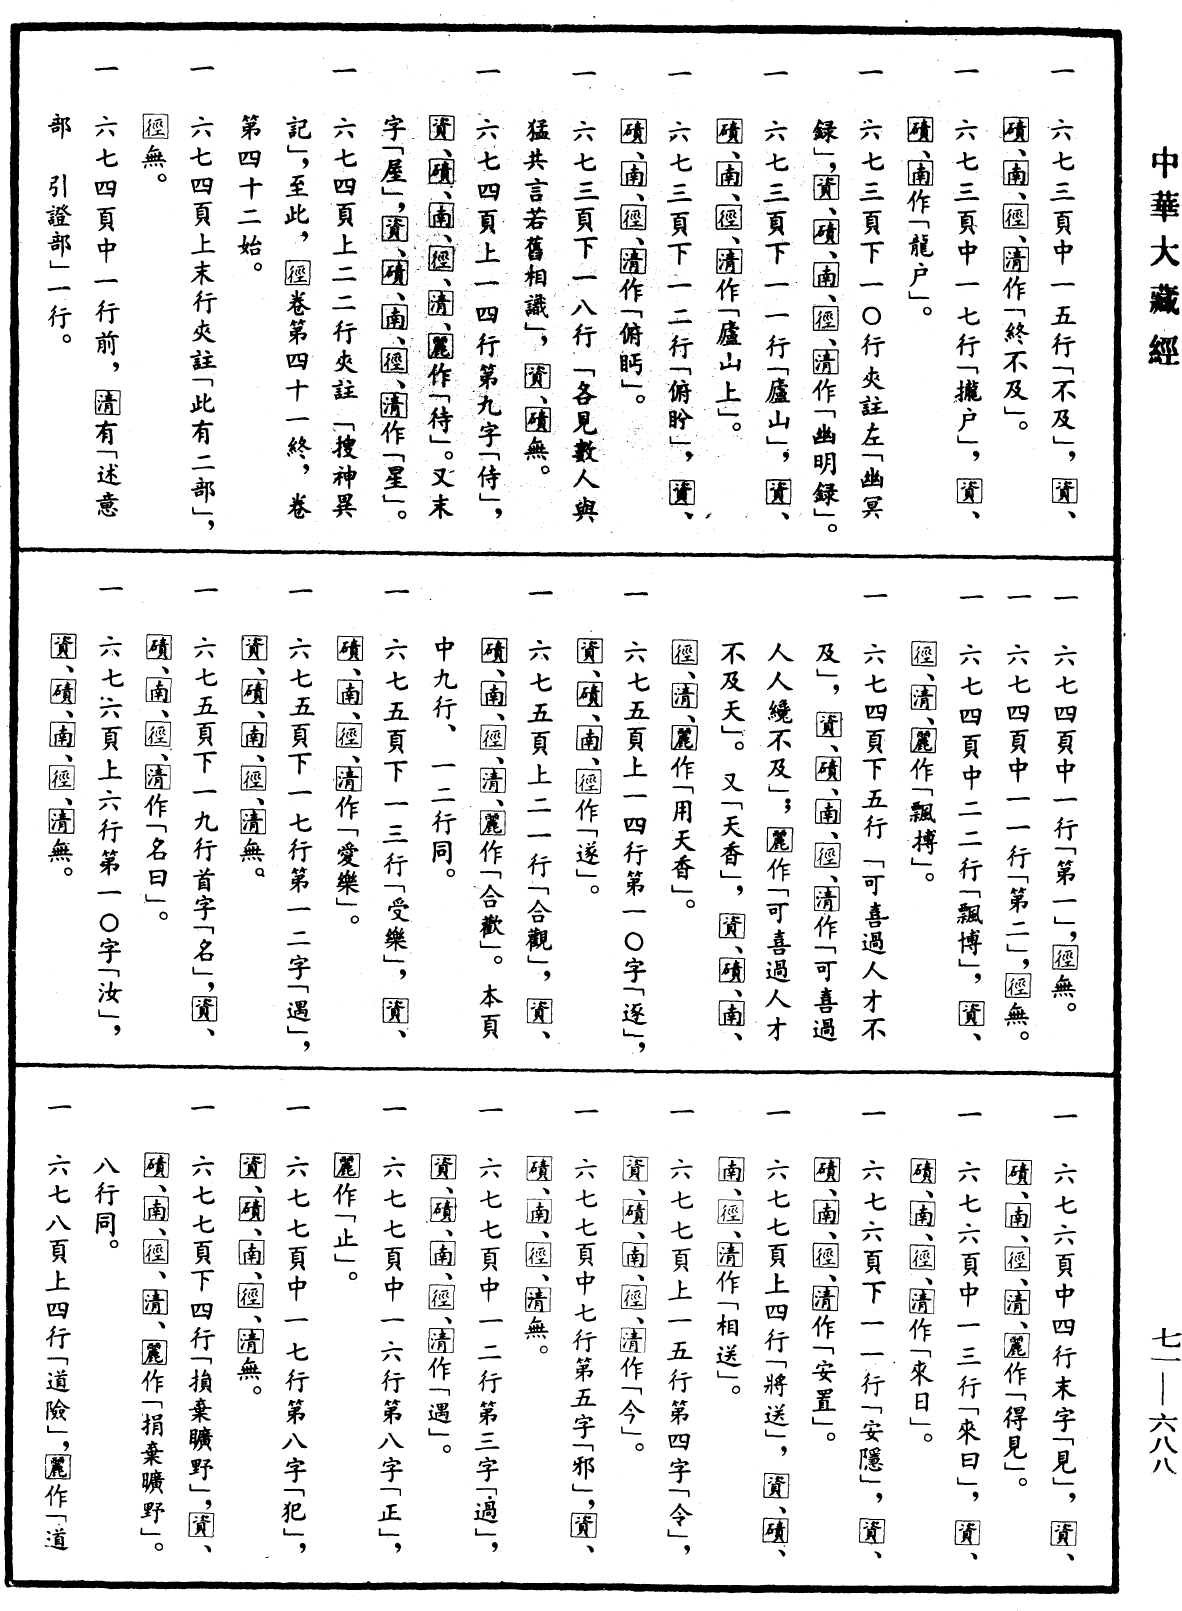 中華大藏經
七一—六八八
一　六七三頁中一五行「不及」，資、
磧、南、徑、清作「終不及」。
一　六七三頁中一七行「攏户」，資、
磧、南作「龍户」。
一　六七三頁下一〇行夾註左「幽冥
録」，資、磧、南、徑、清作「幽明録」。
一　六七三頁下一一行「廬山」，資、
磧、南、徑、清作「廬山上」。
一　六七三頁下一二行「俯盻」，資、
磧、南、徑、清作「俯眄」。
一　六七三頁下一八行「各見數人與
猛共言若舊相識」，資、磧無。
一　六七四頁上一四行第九字「侍」，
資、磧、南、徑、清、麗作「待」。又末
字「屋」，資、磧、南、徑、清作「星」。
一　六七四頁上二二行夾註「搜神異
記」，至此，徑卷第四十一終，卷
第四十二始。
一　六七四頁上末行夾註「此有二部」，
徑無。
一　六七四頁中一行前，清有「述意
部　引證部」一行。
一　六七四頁中一行「第一」，徑無。
一　六七四頁中一一行「第二」，徑無。
一　六七四頁中二二行「飄博」，資、
徑、清、麗作「飄搏」。
一　六七四頁下五行「可喜過人才不
及」，資、磧、南、徑、清作「可喜過
人人纔不及」；麗作「可喜過人才
不及天」。又「天香」，資、磧、南、
徑、清、麗作「用天香」。
一　六七五頁上一四行第一〇字「逐」，
資、磧、南、徑作「遂」。
一　六七五頁上二一行「合觀」，資、
磧、南、徑、清、麗作「合歡」。本頁
中九行、一二行同。
一　六七五頁下一三行「受樂」，資、
磧、南、徑、清作「愛樂」。
一　六七五頁下一七行第一二字「遇」，
資、磧、南、徑、清無。
一　六七五頁下一九行首字「名」，資、
磧、南、徑、清作「名曰」。
一　六七六頁上六行第一〇字「汝」，
資、磧、南、徑、清無。
一　六七六頁中四行末字「見」，資、
磧、南、徑、清、麗作「得見」。
一　六七六頁中一三行「來曰」，資、
磧、南、徑、清作「來日」。
一　六七六頁下一一行「安隱」，資、
磧、南、徑、清作「安置」。
一　六七七頁上四行「將送」，資、磧、
南、徑、清作「相送」。
一　六七七頁上一五行第四字「令」，
資、磧、南、徑、清作「今」。
一　六七七頁中七行第五字「邪」，資、
磧、南、徑、清無。
一　六七七頁中一二行第三字「過」，
資、磧、南、徑、清作「遇」。
一　六七七頁中一六行第八字「正」，
麗作「止」。
一　六七七頁中一七行第八字「犯」，
資、磧、南、徑、清無。
一　六七七頁下四行「損棄曠野」，資、
磧、南、徑、清、麗作「捐棄曠野」。
八行同。
一　六七八頁上四行「道險」，麗作「道